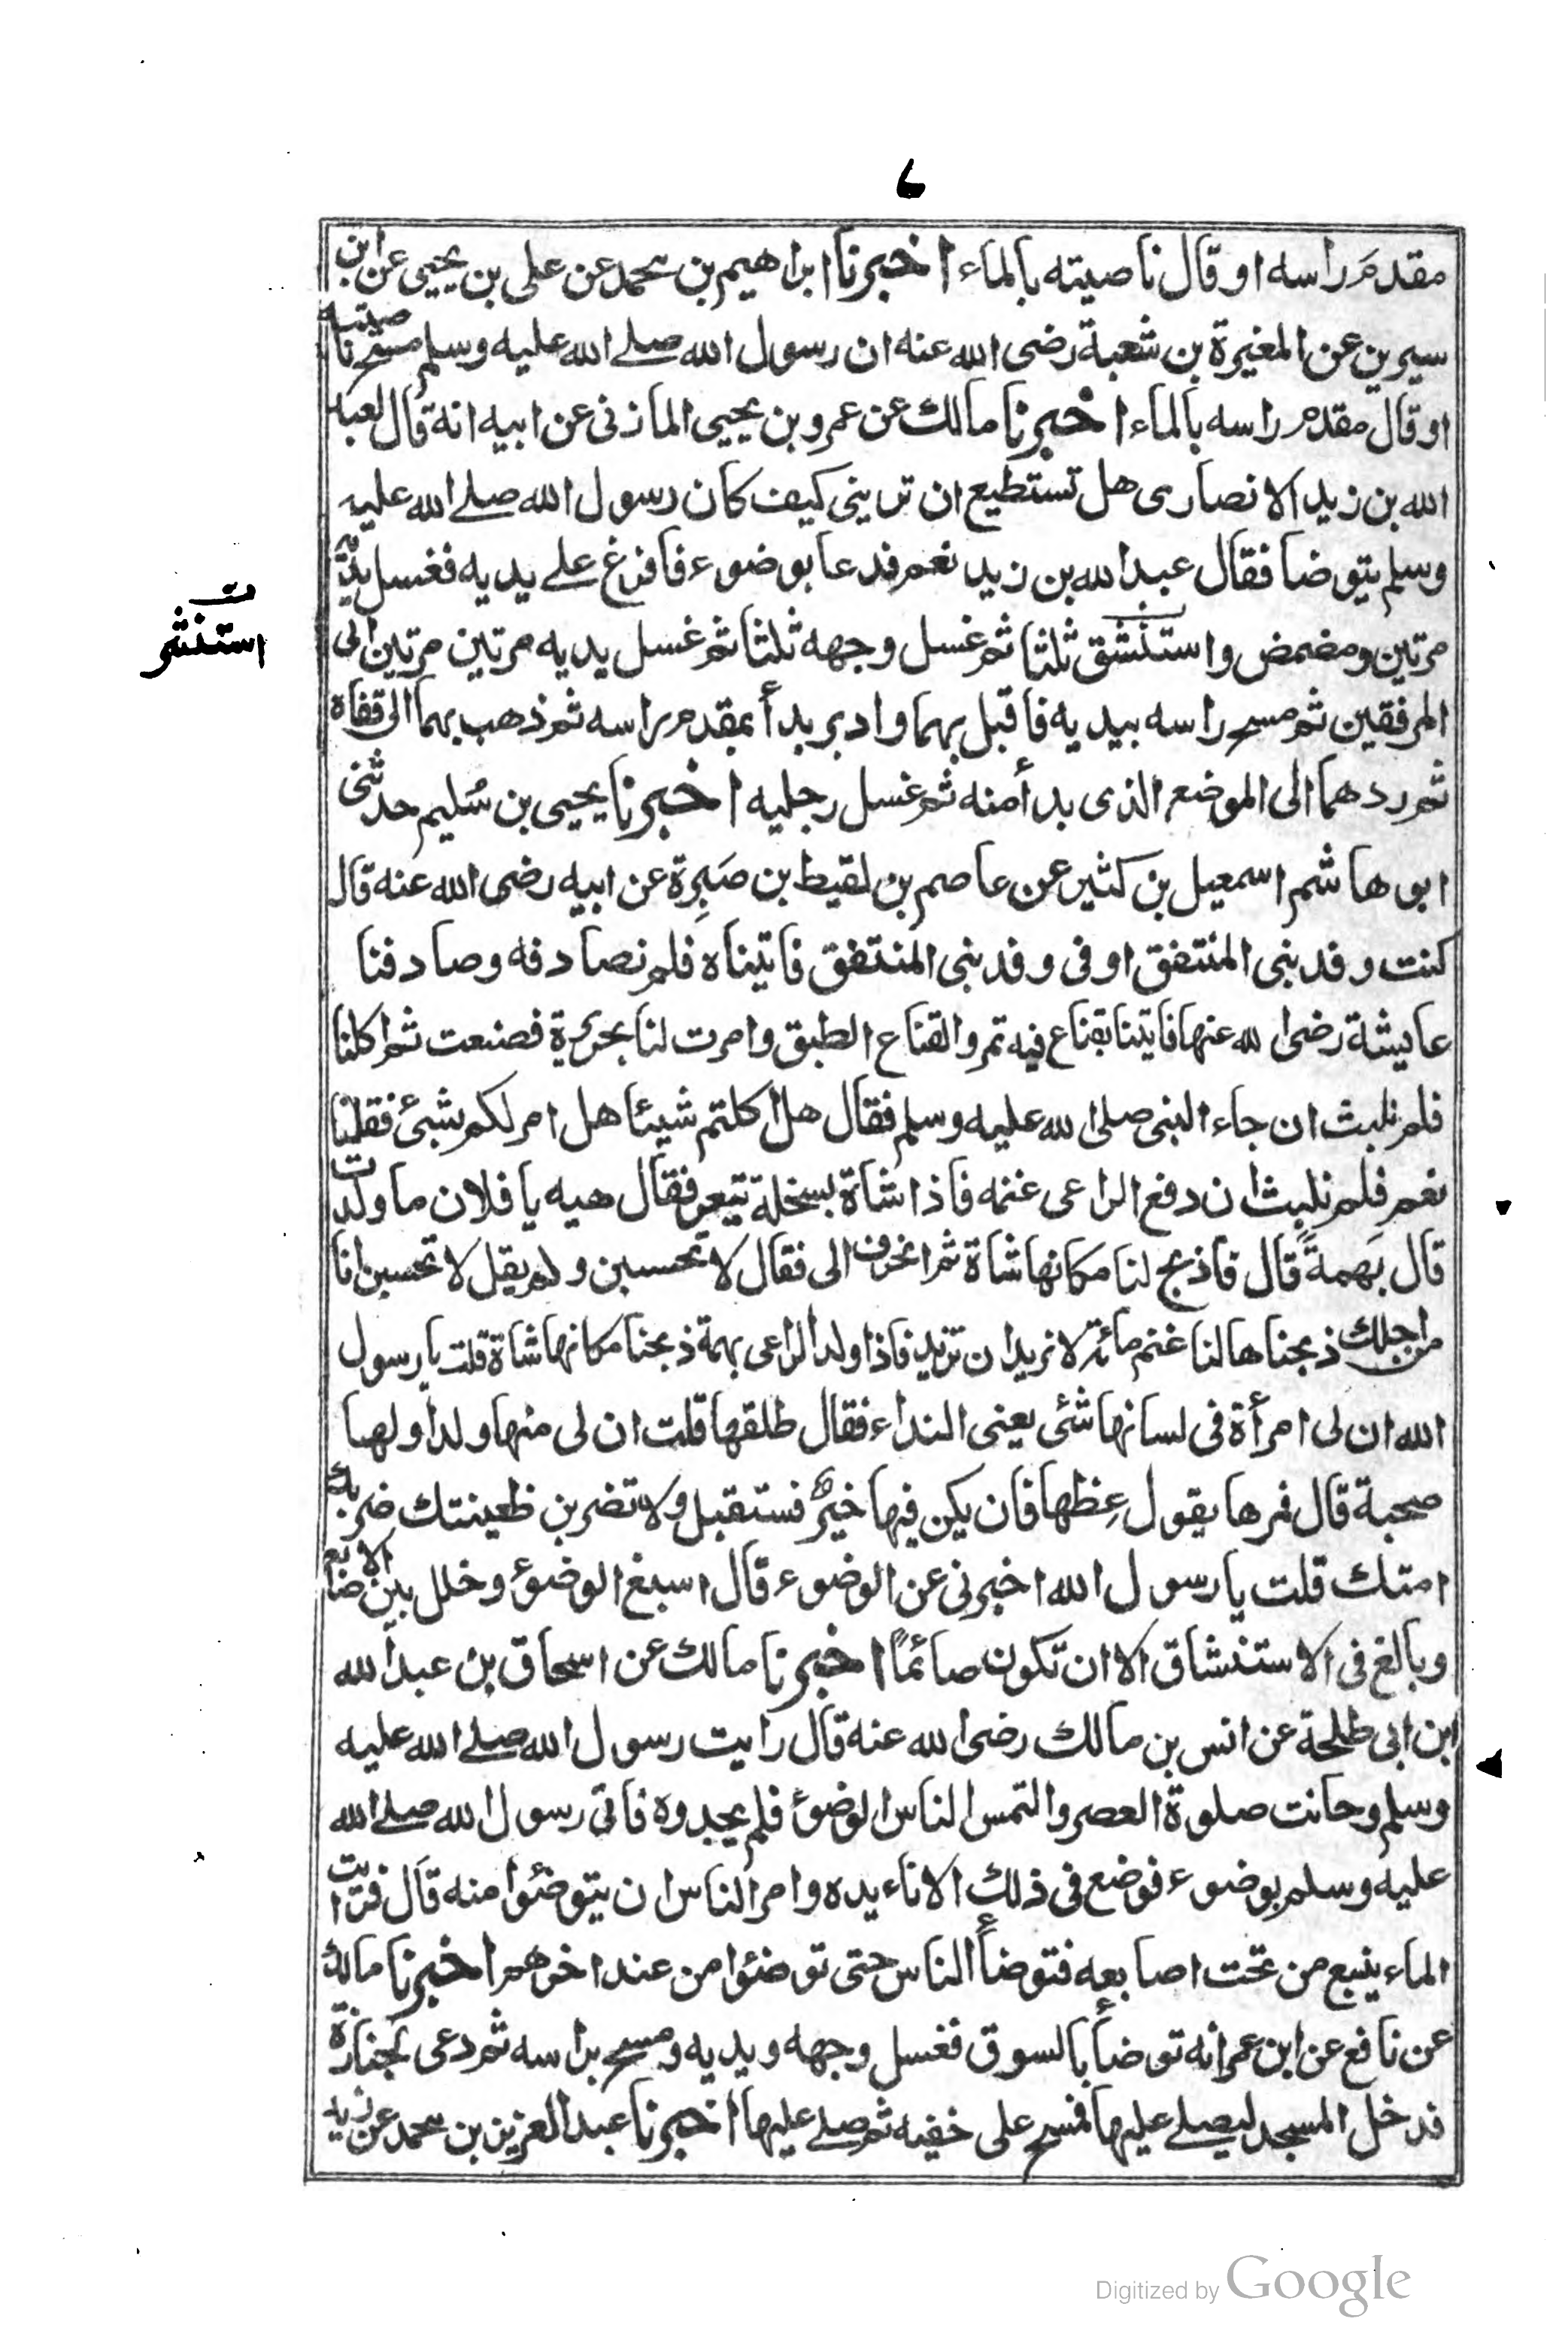 ٦
مقدم راسه او قال ناصيته بالماء اخبرنا ابراهيم بن محمد عن على بن يحيى عن ابن
سيرين عن المغيرة بن شعبة رضى الله عنه ان رسول الله صلے الله عليه وسلم مسح ناصيته
او قال مقدم راسه بالماء اخبرنا مالك عن عمرو بن يحيى المازنى عن ابيه انه قال لعبد
الله بن زيد الانصارى هل تستطيع ان ترينى كيف كان رسول الله صلے الله عليه
وسلم يتوضا فقال عبد الله بن زيد نعم فدعا بوضوء فافرغ علے يديه فغسل يديه
مرتين ومضمض واستنشق ثلثا ثم غسل وجهه ثلثا ثم غسل يديه مرتين مرتين الى
ت
استنثر
المرفقين ثم مسح راسه بيديه فاقبل بهما وادبر بدأ بمقدم راسه ثم ذهب بهما الى قفاه
ثم ردهما الى الموضع الذى بدأ منه ثم غسل رجليه اخبرنا يحيى بن سُليم حدثنى
ابو هاشم اسمعيل بن كثير عن عاصم بن لقيط بن صَبِرة عن ابيه رضى الله عنه قال
كنت وفد بنى المنتفق او فى وفد بنى المنتفق فاتيناه فلم نصادفه وصادفنا
عايشة رضى الله عنها فاتينا بقناع فيه تمر والقناع الطبق وامرت لنا بحريرة فصنعت ثم اكلنا
فلم نلبث ان جاء النبى صلى الله عليه وسلم فقال هل اكلتم شيئا هل امر لكم بشئ فقلنا
نعم فلم نلبث ان دفع الراعى غنمه فاذا شاة بسخلة تيعر فقال هيه يا فلان ما ولدت
قال بَهمةً قال فاذبح لنا مكانها شاة ثم انحرف الى فقال لا تحسبن ولم يقل لا تحسبن انا
من اجلك ذبحناها لنا غنم مائة لا نريد ان تزيد فاذا ولد الراعى بهمة ذبحنا مكانها شاة قلت يا رسول
الله ان لى امرأة فى لسانها شئ يعنى النداء فقال طلقها قلت ان لى منها ولدا ولها
صحبة قال فمرها يقول عِظها فان يكن فيها خيرٌ فستقبل ولا تضربن ظعينتك ضربك
امتك قلت يا رسول الله اخبرنى عن الوضوء قال اسبغ الوضوء وخلل بين الاصابع
وبالغ فى الاستنشاق الا ان تكون صائمًا اخبرنا مالك عن اسحاق بن عبد الله
ابن ابى طلحة عن انس بن مالك رضى الله عنه قال رايت رسول الله صلے الله عليه
وسلم وحانت صلوة العصر والتمس الناس الوضوء فلم يجدوه فاتى رسول الله صلے الله
عليه وسلم بوضوء فوضع فى ذلك الاناء يده وامر الناس ان يتوضئوا منه قال فرايت
الماء ينبع من تحت اصابعه فتوضأ الناس حتى توضئوا من عند اخرهم اخبرنا مالك
عن نافع عن ابن عمر انه توضأ بالسوق فغسل وجهه ويديه ومسح براسه ثم دعى لجنازة
فدخل المسجد ليصلے عليها فمسح على خفيه ثم صلے عليها اخبرنا عبد العزيز بن محمد عن زيد
Digitized by Google